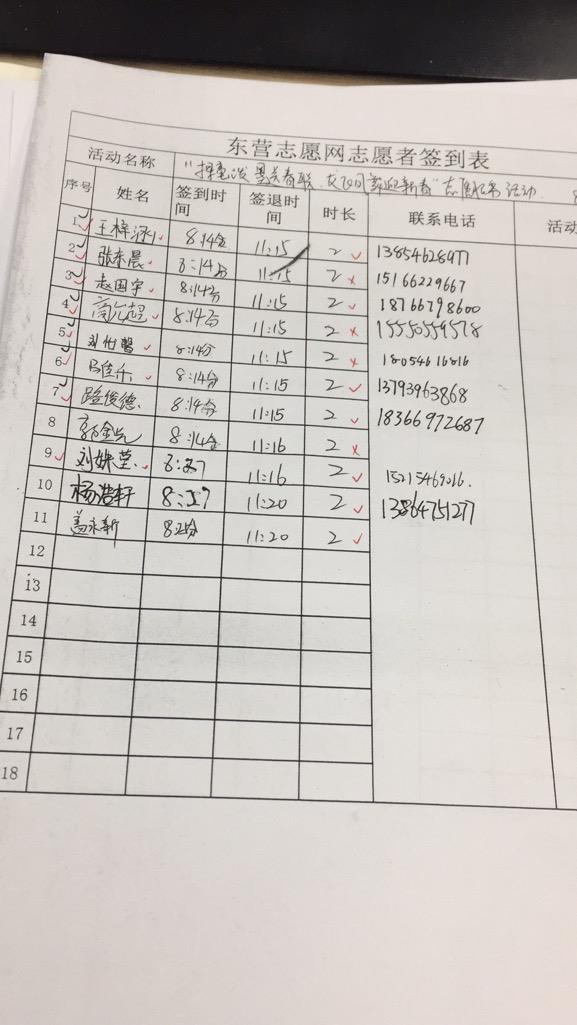 东营志愿网志愿者签到表
活动名称 "挥毫泼墨关春联、龙飞凤舞迎新春"志愿服务活动
序号 姓名 签到时间 签退时间 时长 联系电话 活动
1 王梓 8:14分 11:15 2 13854628977
2 张东晨 8:14分 11:15 2 15166229667
3 赵国宇 8:14分 11:15 2 18766798600
4 高 8:14分 11:15 2 15550559578
5 刘 8:14分 11:15 2 18054616816
6 8:14分 11:15 2 13793963868
7 路俊德 8:14分 11:15 2 18366972687
8 郭金 8:14分 11:16 2
9 刘姝莹 8:27 11:16 2 15215469016.
10 杨浩轩 8:27 11:20 2 13864751277
11 盖永新 11:20 2
12
13
14
15
16
17
18